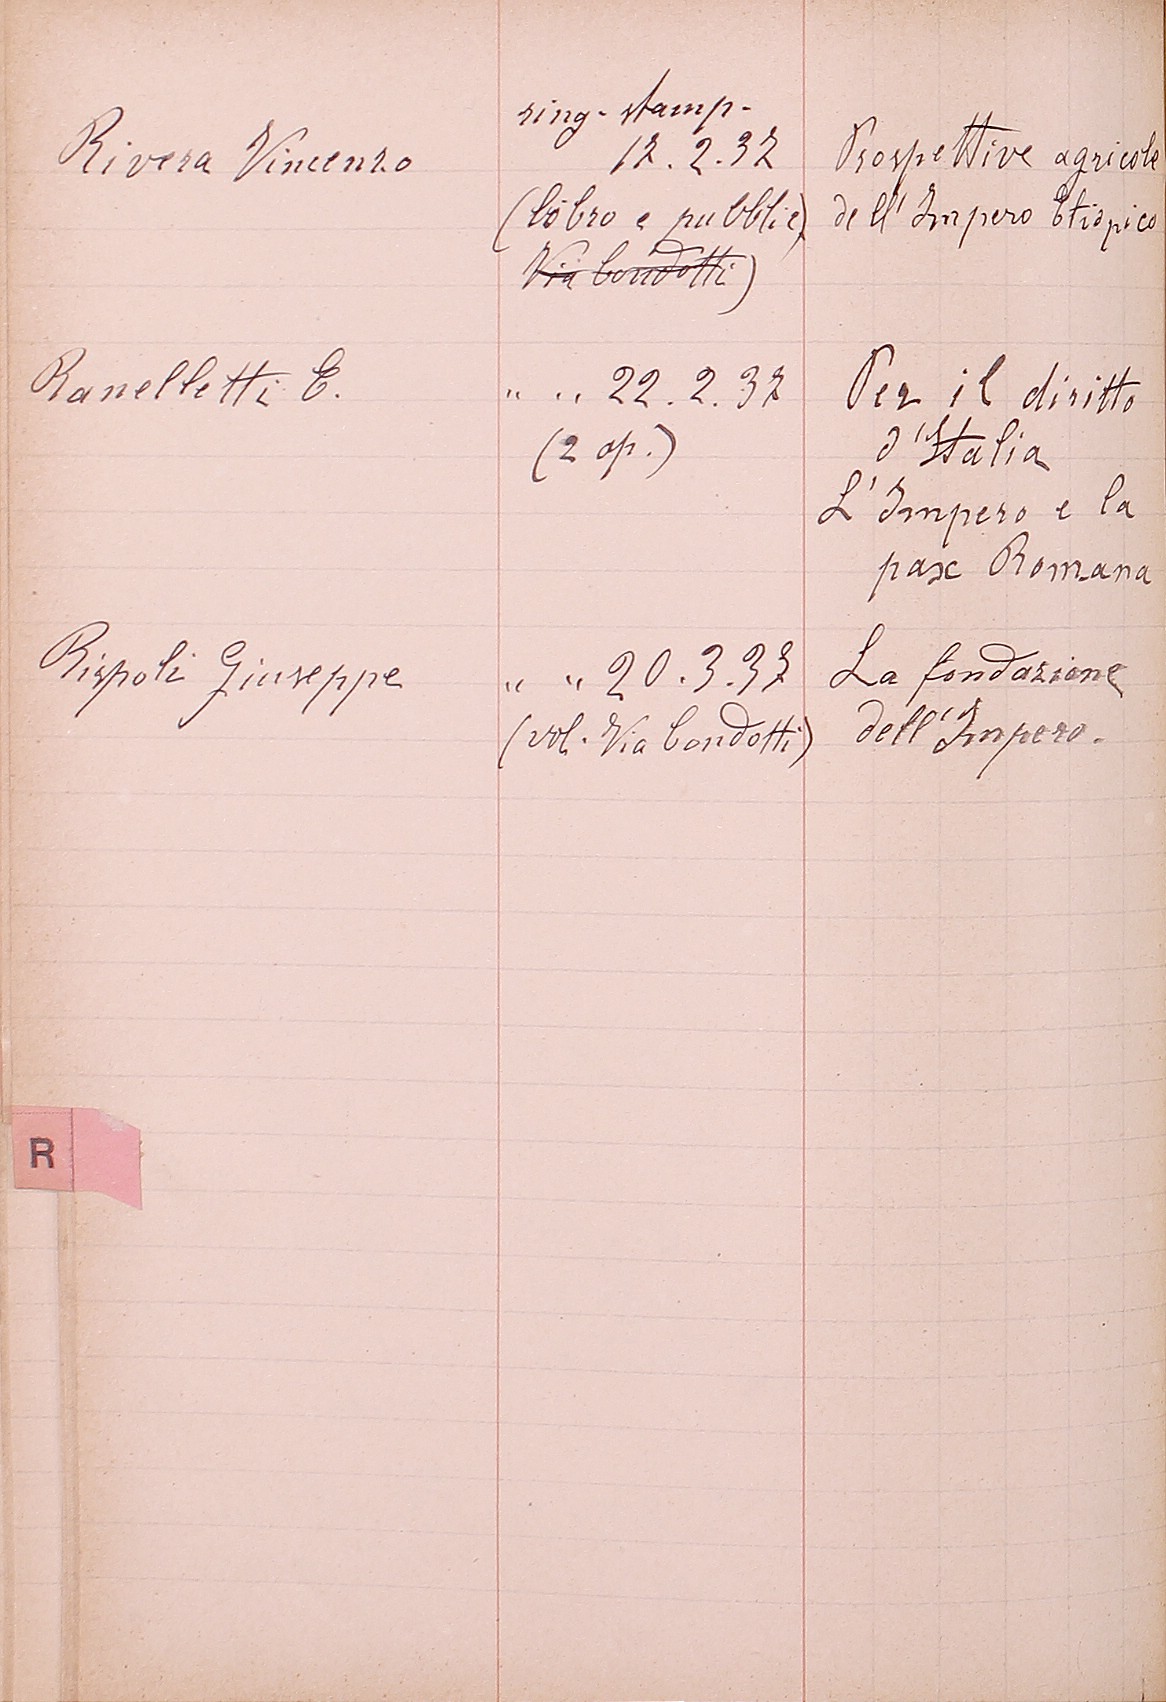 ring- stamp-
Rivera Vincenzo 12.2.37 Prospettive agricole
(libro e pubblic) dell'Impero Etiopico
Via Condotti)
Ranelletti E. " " 22.2.37 Per il diritto
(2 op.) d'Italia
L'Impero e la
pax Romana
Rispoli Giuseppe " " 20.3.37 La fondazione
(vol. Via Condotti) dell'Impero.
R